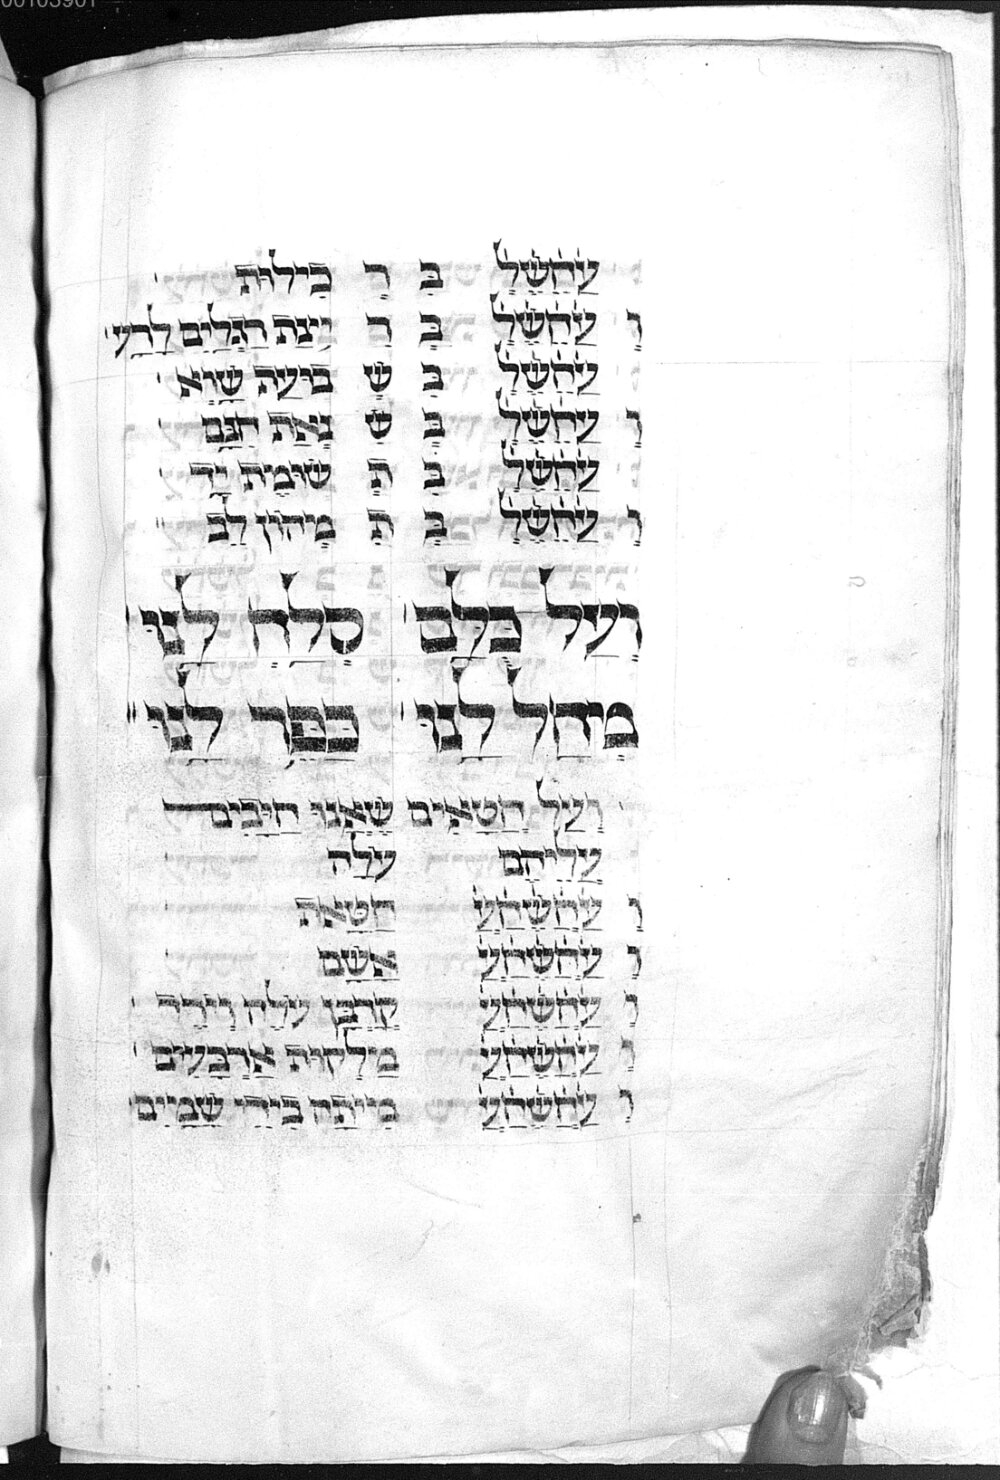 עַחַשַׁלְ בִּ רְ כִילוּת
וְ עַחַשַׁלְ בְּ רִ יצַת רַגְלַיִם לְרָע
עַחַשַׁלְ בִּ שְׁ בוּעַת שָׁוְא
וְ עַחַשַׁלְ בְּ שִׂ נְאַת חִנָּם
עַחַשַׁלְ בִּ תְ שׂוּמֶת יָד
וְ עַחַשַׁלְ בְּ תִ מְהוֹן לֵב
וְעַל כֻּלָּם סְלַח לָנוּ
מְחַל לָנוּ כַּפֶּר לָנוּ
וְעַל חֲטָאִים שֶׁאָנוּ חַיָּבִים
עֲלֵיהֶם עֹלָה
וְ עַחַשֶׁחַעַ חַטָּאת
וְ עַחַשֶׁחַעַ אָשָׁם
וְ עַחַשֶׁחַעַ קָרְבָּן עוֹלֶה וְיוֹרֵד
וְ עַחַשֶׁחַעַ מַלְקוּת אַרְבָּעִים
וְ עַחַשֶׁחַעַ מִיתָה בִּידֵי שָׁמַיִם